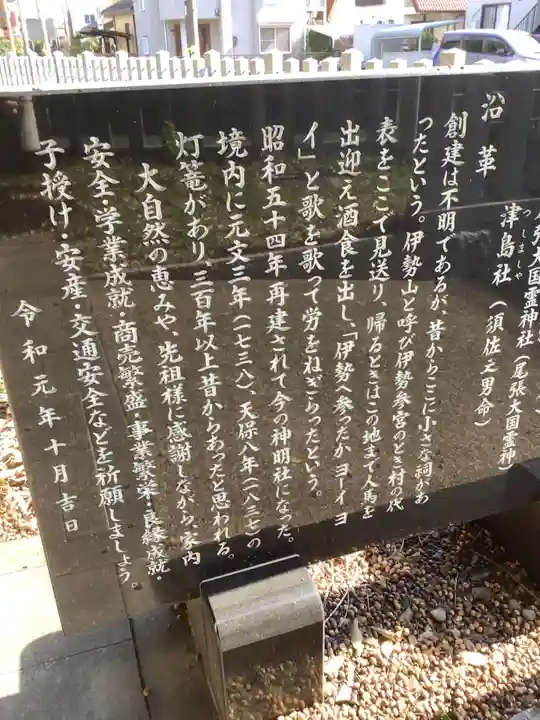 張大国霊神社(尾張大国霊神)
つしましゃ
津島社(須佐之男命)
沿革
創建は不明であるが、昔からここに小さな祠があ
ったという。伊勢山と呼び伊勢参宮のとき村の代
表をここで見送り、帰るときはこの地まで人馬を
出迎え酒食を出し、「伊勢へ参ったかヨーイヨ
イ」と歌を歌って労をねぎらったという。
昭和五十四年再建されて今の神明社になった。
境内に元文三年(一七三八)、天保八年(一八三七)の
灯篭があり、三百年以上昔からあったと思われる。
大自然の恵みや、先祖様に感謝しながら、家内
安全・学業成就・商売繁盛・事業繁栄・良縁成就・
子授け・安産・交通安全などを祈願しましょう。
令和元年十月吉日